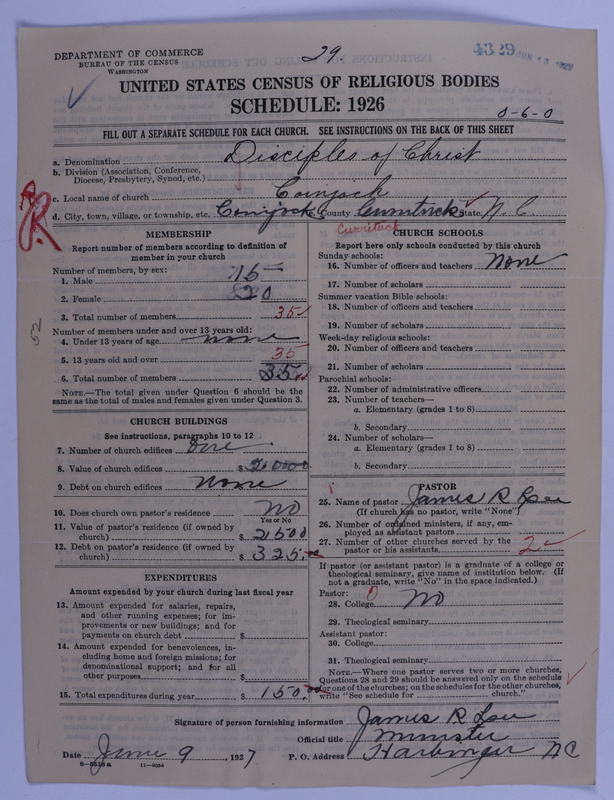 DEPARTMENT OF COMMERCE
BUREAU OF THE CENSUS
WASHINGTON
29
4329 JUN 13 1927
UNITED STATES CENSUS OF RELIGIOUS BODIES
SCHEDULE: 1926
0-6-0
FILL OUT A SEPARATE SCHEDULE FOR EACH CHURCH. SEE INSTRUCTIONS ON THE BACK OF THIS SHEET
a. Denomination Disciples of Christ
b. Division (Association, Conference, Diocese, Presbytery, Synod, etc.)
c. Local name of church Coinjock
d. City, town, village, or township, etc. Coinjock County Currituck State N. C.
Currituck
R
52
MEMBERSHIP
Report number of members according to definition of member in your church
Number of members, by sex:
1. Male 15
2. Female 20
3. Total number of members 35
Number of members under and over 13 years old:
4. Under 13 years of age none
5. 13 years old and over 35
6. Total number of members 35
NOTE.—The total given under Question 6 should be the same as the total of males and females given under Question 3.
CHURCH BUILDINGS
See instructions, paragraphs 10 to 12
7. Number of church edifices One
8. Value of church edifices $
9. Debt on church edifices None
10. Does church own pastor's residence No
Yes or No
11. Value of pastor's residence (if owned by church) $ 2500
12. Debt on pastor's residence (if owned by church) $ 325.
EXPENDITURES
Amount expended by your church during last fiscal year
13. Amount expended for salaries, repairs, and other running expenses; for improvements or new buildings; and for payments on church debt $
14. Amount expended for benevolences, including home and foreign missions; for denominational support; and for all other purposes $
15. Total expenditures during year $ 150.00
CHURCH SCHOOLS
Report here only schools conducted by this church
Sunday schools:
16. Number of officers and teachers None
17. Number of scholars
Summer vacation Bible schools:
18. Number of officers and teachers
19. Number of scholars
Week-day religious schools:
20. Number of officers and teachers
21. Number of scholars
Parochial schools:
22. Number of administrative officers
23. Number of teachers—
a. Elementary (grades 1 to 8)
b. Secondary
24. Number of scholars—
a. Elementary (grades 1 to 8)
b. Secondary
PASTOR
1
25. Name of pastor James R
(If church has no pastor, write "None")
26. Number of ordained ministers, if any, employed as assistant pastors
27. Number of other churches served by the pastor or his assistants 2
If pastor (or assistant pastor) is a graduate of a college or theological seminary, give name of institution below. (If not a graduate, write "No" in the space indicated.)
Pastor: 0
28. College No
29. Theological seminary
Assistant pastor:
30. College
31. Theological seminary
NOTE.—Where one pastor serves two or more churches, Questions 28 and 29 should be answered only on the schedule for one of the churches; on the schedules for the other churches, write "See schedule for church."
Signature of person furnishing information James R
Official title Minister
Date June 9, 1927 P. O. Address Harbinger NC
8-5616a 11-9054